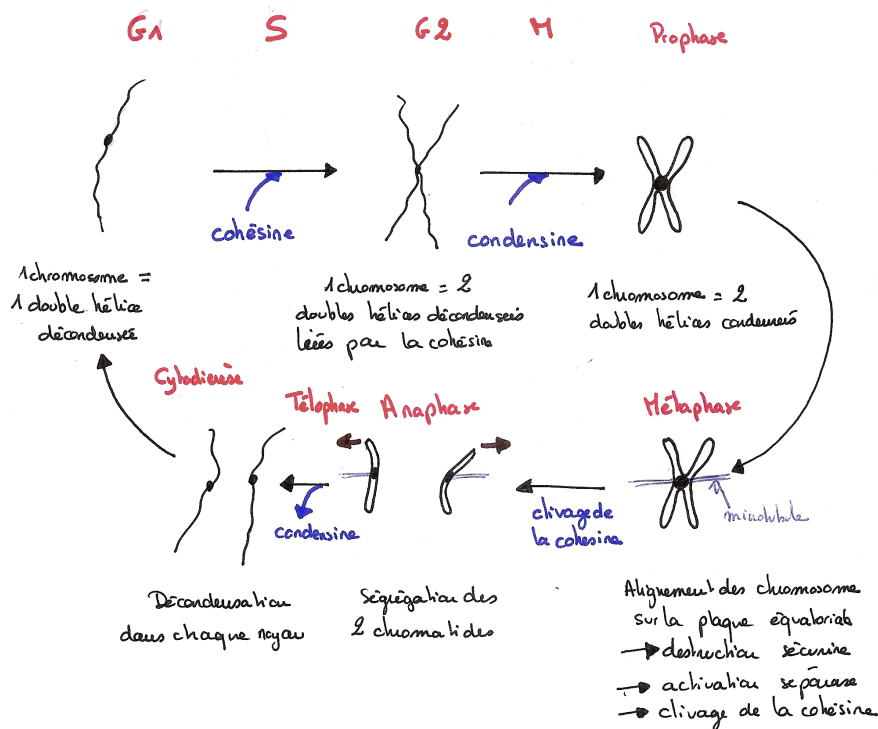 G1 S G2 M Prophase
cohésine
condensine
1 chromosome =
1 double hélice
décondensée
1 chromosome = 2
doubles hélices décondensés
liées par la cohésine
1 chromosome = 2
doubles hélices condensés
Cytodiérèse
Télophase Anaphase
Métaphase
condensine
clivage de
la cohésine
microtubule
Décondensation
dans chaque noyau
Ségrégation des
2 chromatides
Alignement des chromosome
sur la plaque équatoriale
→ destruction sécurine
→ activation séparase
→ clivage de la cohésine